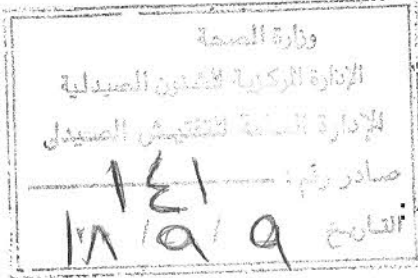 وزارة الصحة
الإدارة المركزية للشئون الصيدلية
الإدارة العامة للتفتيش الصيدلى
صادر رقم : ١٤١
التاريخ ٩ / ٩ /